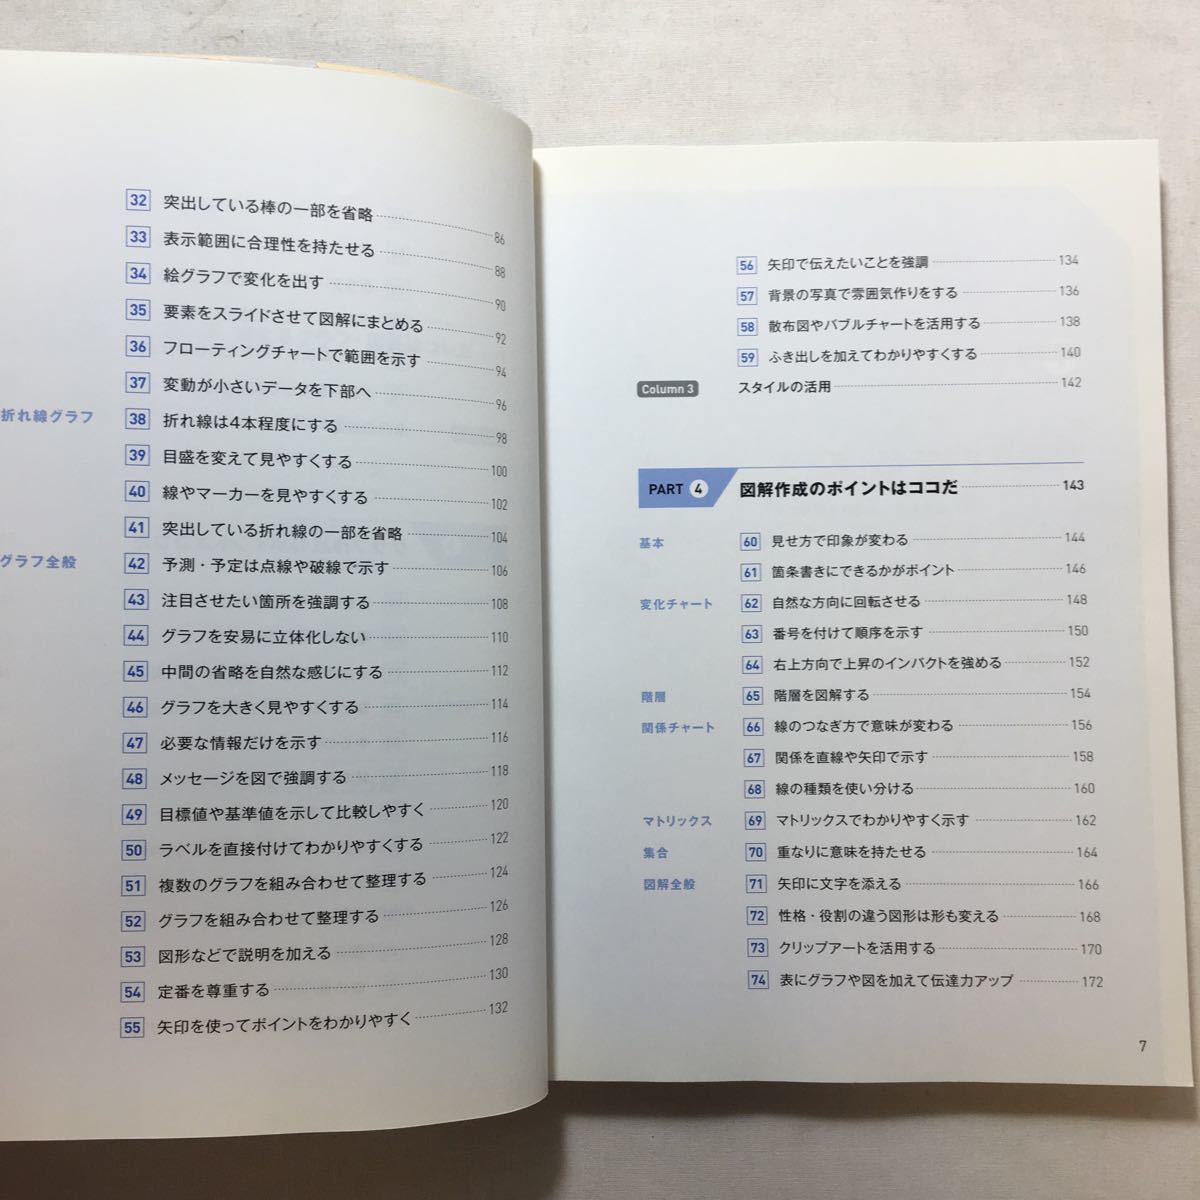 32 突出している棒の一部を省略 86
33 表示範囲に合理性を持たせる 88
34 絵グラフで変化を出す 90
35 要素をスライドさせて図解にまとめる 92
36 フローティングチャートで範囲を示す 94
37 変動が小さいデータを下部へ 96
折れ線グラフ 38 折れ線は4本程度にする 98
39 目盛を変えて見やすくする 100
40 線やマーカーを見やすくする 102
41 突出している折れ線の一部を省略 104
グラフ全般 42 予測・予定は点線や破線で示す 106
43 注目させたい箇所を強調する 108
44 グラフを安易に立体化しない 110
45 中間の省略を自然な感じにする 112
46 グラフを大きく見やすくする 114
47 必要な情報だけを示す 116
48 メッセージを図で強調する 118
49 目標値や基準値を示して比較しやすく 120
50 ラベルを直接付けてわかりやすくする 122
51 複数のグラフを組み合わせて整理する 124
52 グラフを組み合わせて整理する 126
53 図形などで説明を加える 128
54 定番を尊重する 130
55 矢印を使ってポイントをわかりやすく 132
56 矢印で伝えたいことを強調 134
57 背景の写真で雰囲気作りをする 136
58 散布図やバブルチャートを活用する 138
59 ふき出しを加えてわかりやすくする 140
Column 3 スタイルの活用 142
PART 4 図解作成のポイントはココだ 143
基本 60 見せ方で印象が変わる 144
61 箇条書きにできるかがポイント 146
変化チャート 62 自然な方向に回転させる 148
63 番号を付けて順序を示す 150
64 右上方向で上昇のインパクトを強める 152
階層 65 階層を図解する 154
関係チャート 66 線のつなぎ方で意味が変わる 156
67 関係を直線や矢印で示す 158
68 線の種類を使い分ける 160
マトリックス 69 マトリックスでわかりやすく示す 162
集合 70 重なりに意味を持たせる 164
図解全般 71 矢印に文字を添える 166
72 性格・役割の違う図形は形も変える 168
73 クリップアートを活用する 170
74 表にグラフや図を加えて伝達力アップ 172
7